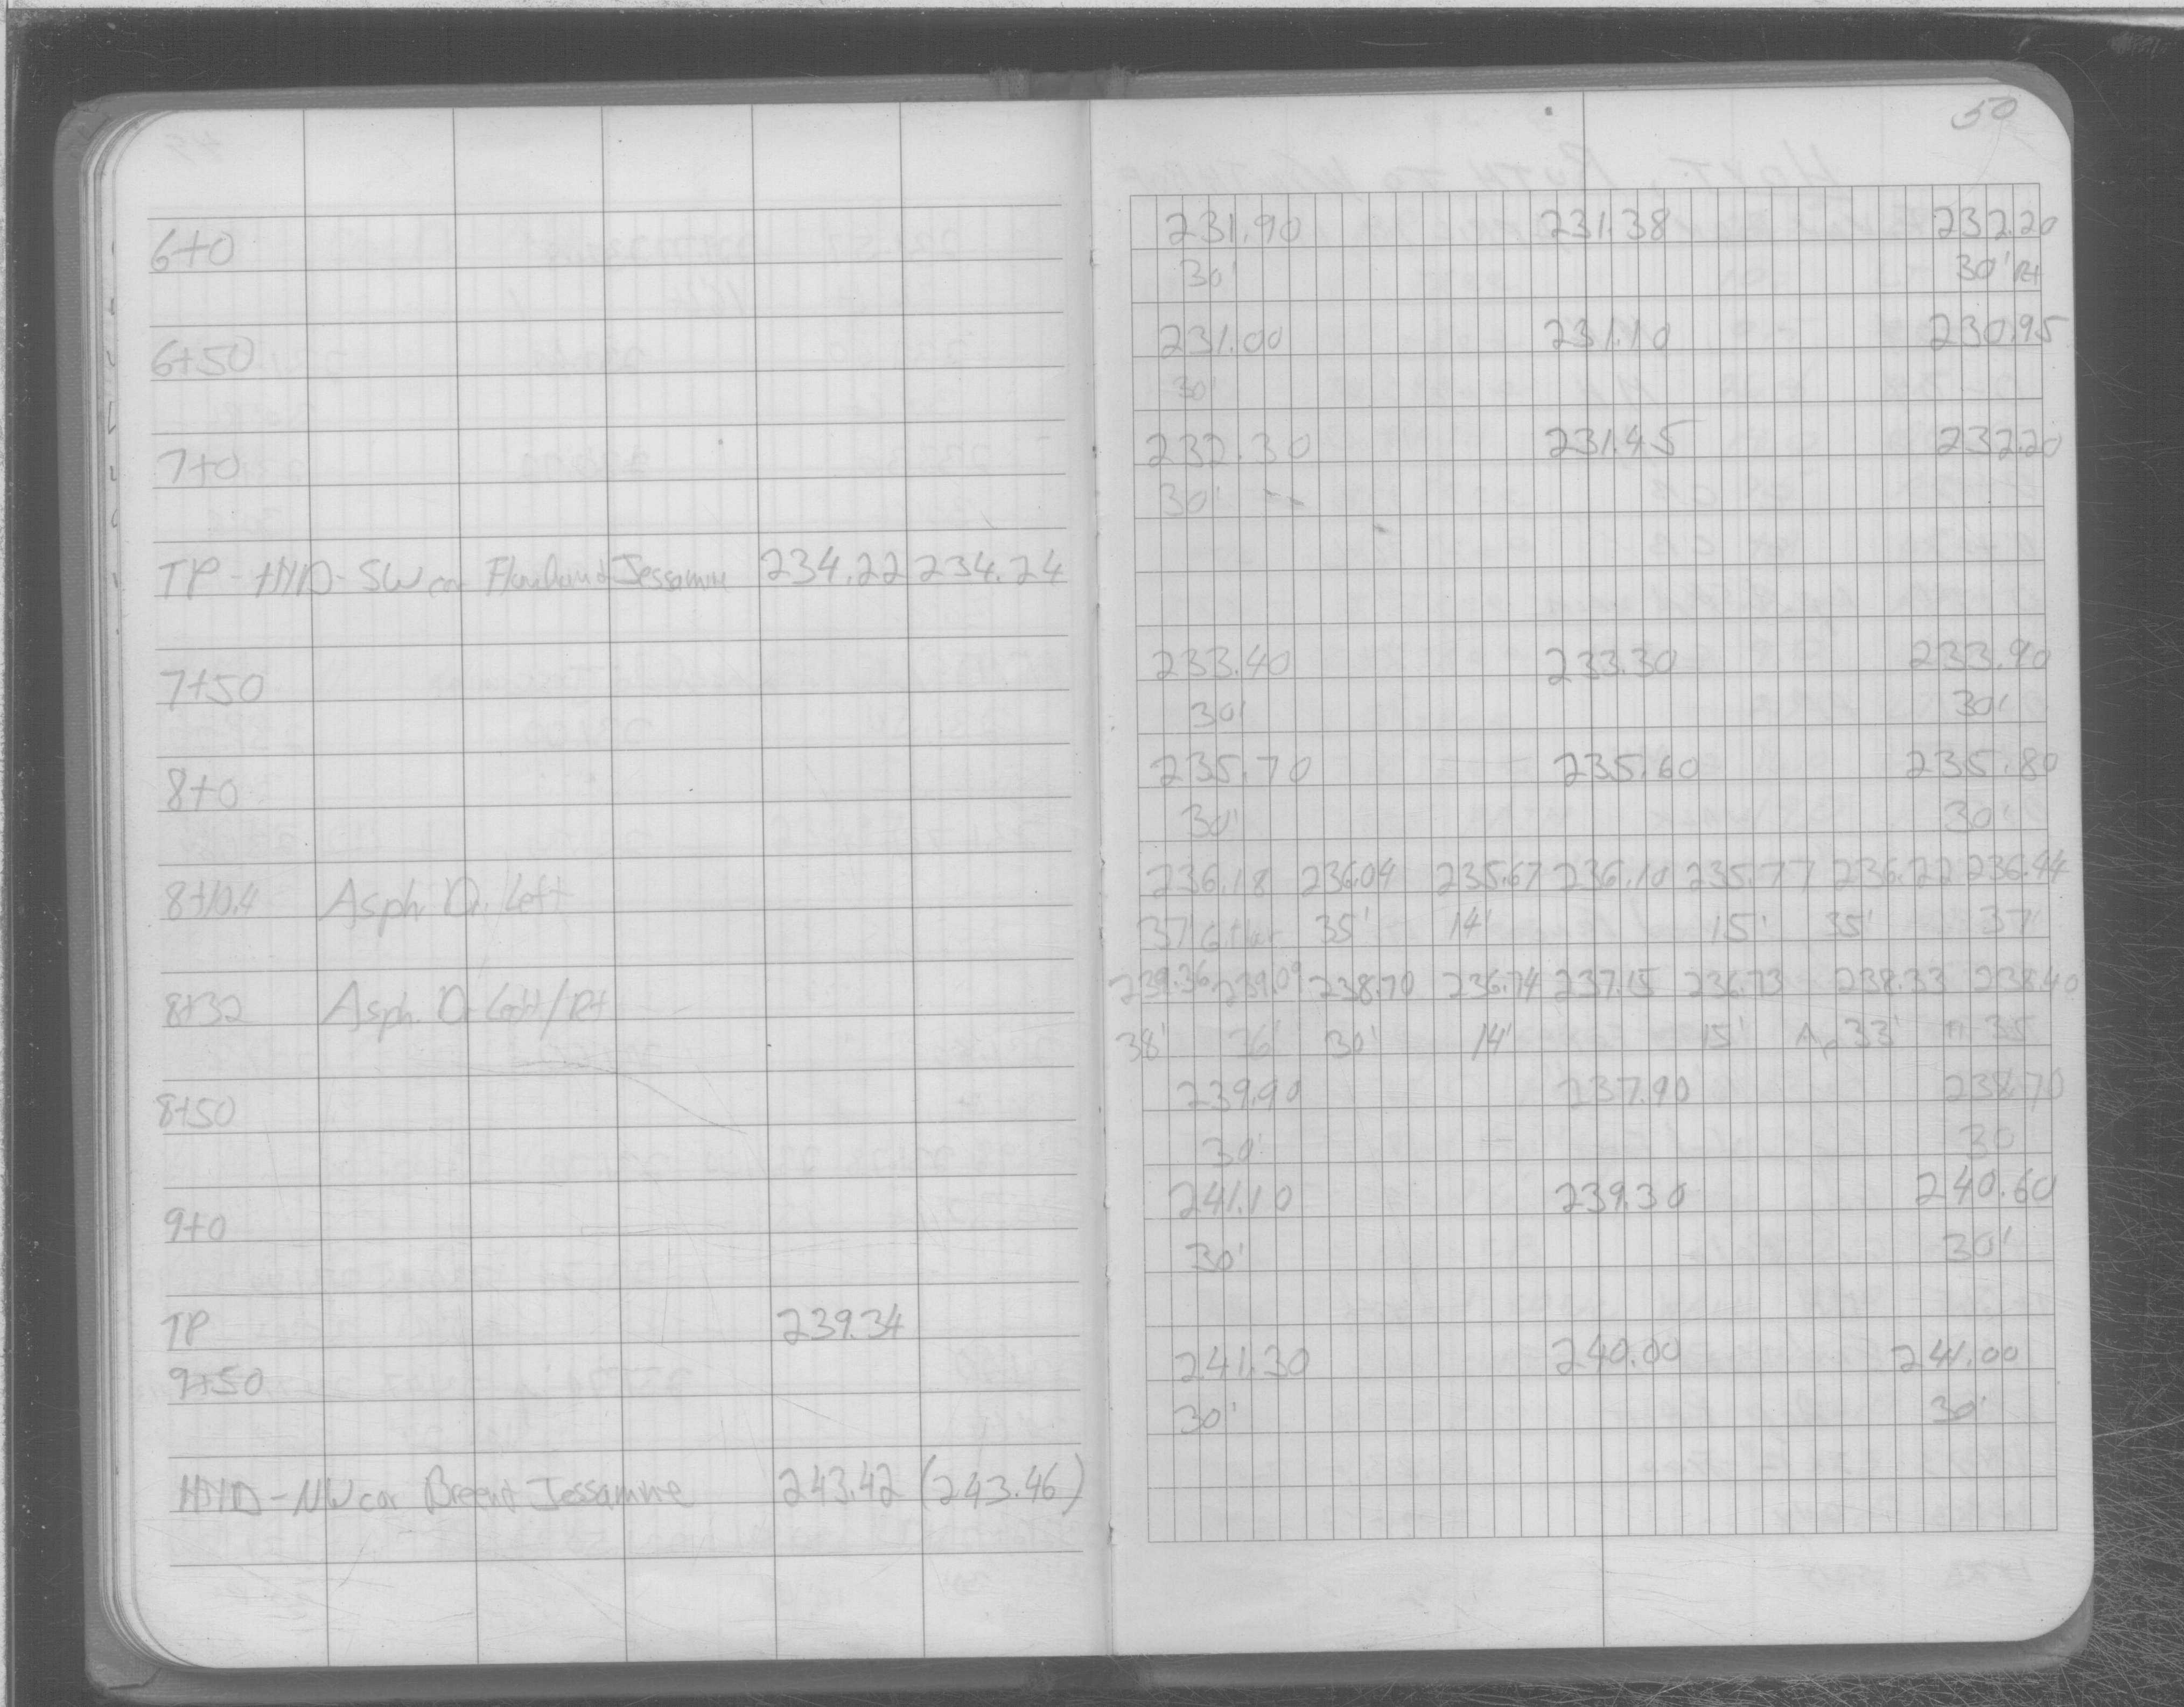 50
6+0 231.90 231.38 232.20
30' 30' Rt
6+50 231.00 231.10 230.95
30'
7+0 232.30 231.45 232.20
30'
TP - HYD - SW cor Jessamine 234.22 234.24
7+50 233.40 233.30 233.90
30' 30'
8+0 235.70 235.60 235.80
30' 30'
8+10.4 Asph. Dr. Left 236.18 236.04 235.67 236.10 235.77 236.22 236.44
37' Gutter 35' 14' 15' 35' 37'
8+32 Asph. Dr Left/Rt 239.36 239.09 238.70 236.74 237.15 236.73 238.33 238.40
38' 36' 30' 14' 15' Ap 33' 35
8+50 239.90 237.90 238.70
30' 30
9+0 241.10 239.30 240.60
30' 30'
TP 239.34
9+50 241.30 240.00 241.00
30' 30'
HYD - NW cor Breen & Jessamine 243.42 (243.46)